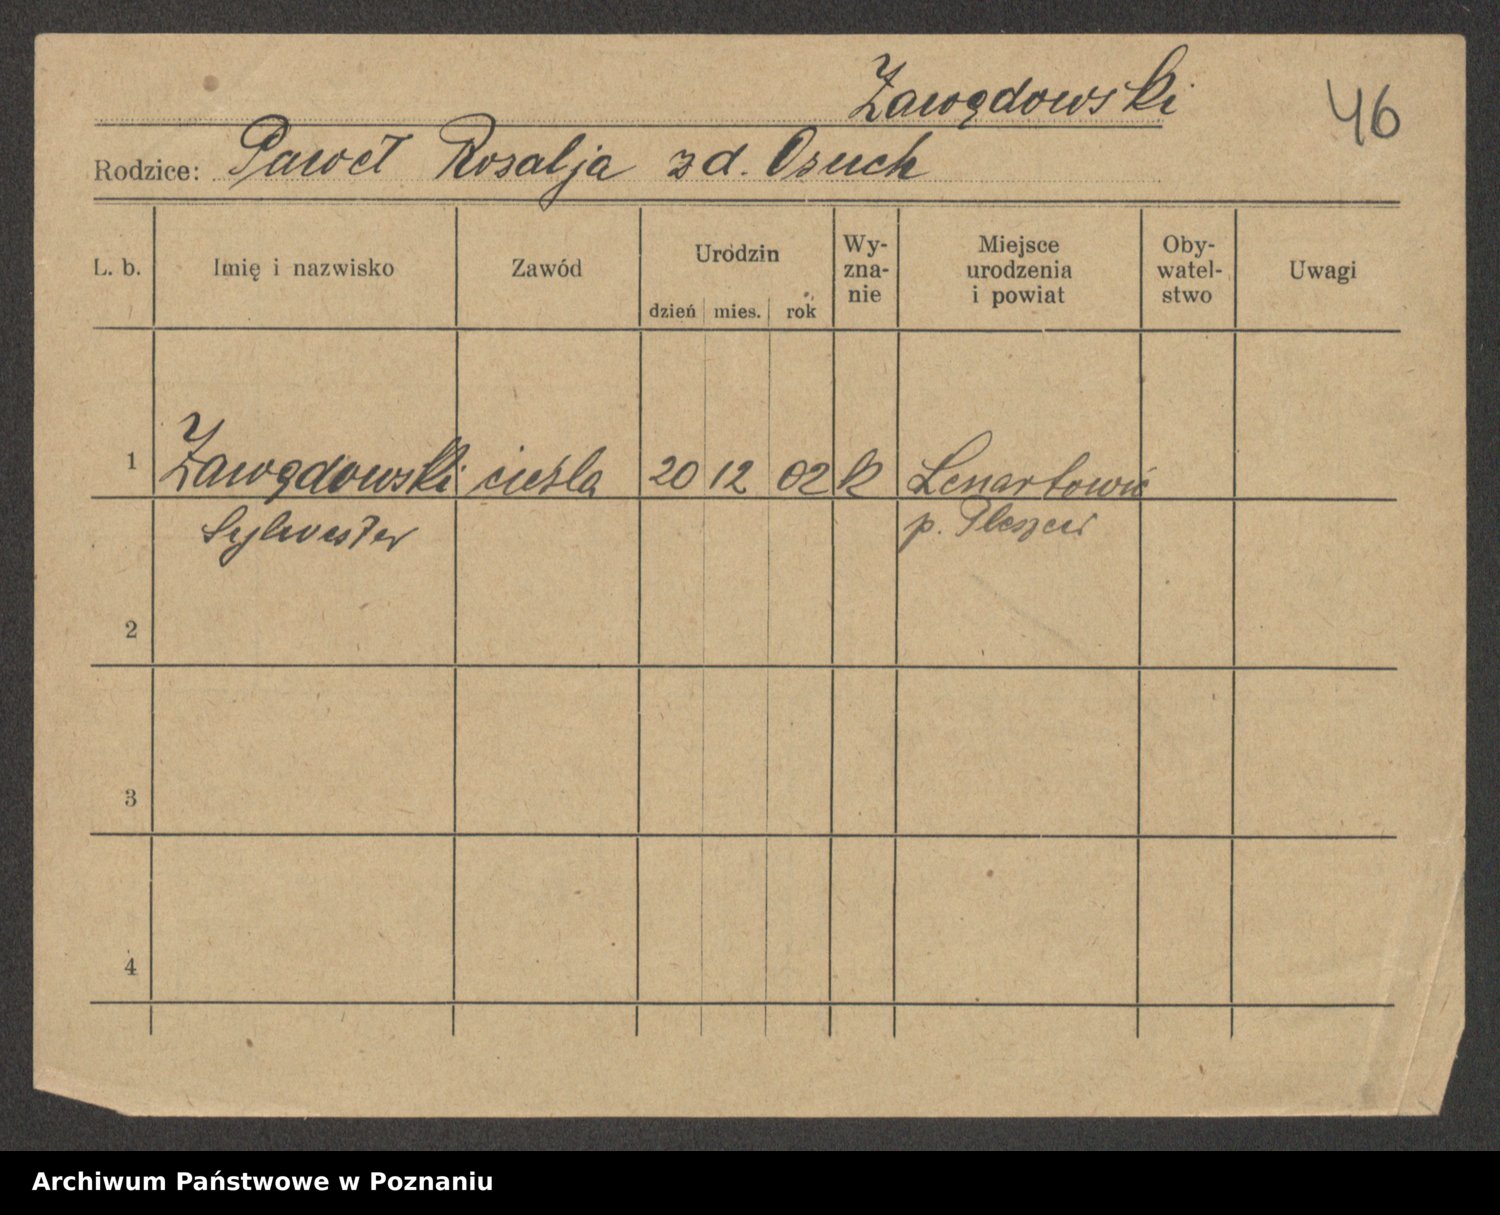 Zawędowski
46
Rodzice: Paweł Rosalja z d. Osuch
L. b.
Imię i nazwisko
Zawód
Urodzin
dzień mies. rok
Wy-
zna-
nie
Miejsce
urodzenia
i powiat
Oby-
watel-
stwo
Uwagi
1 Zawędowski cieśla 20 12 02 k Lenartowic
Sylwester p. Pleszew
2
3
4
Archiwum Państwowe w Poznaniu